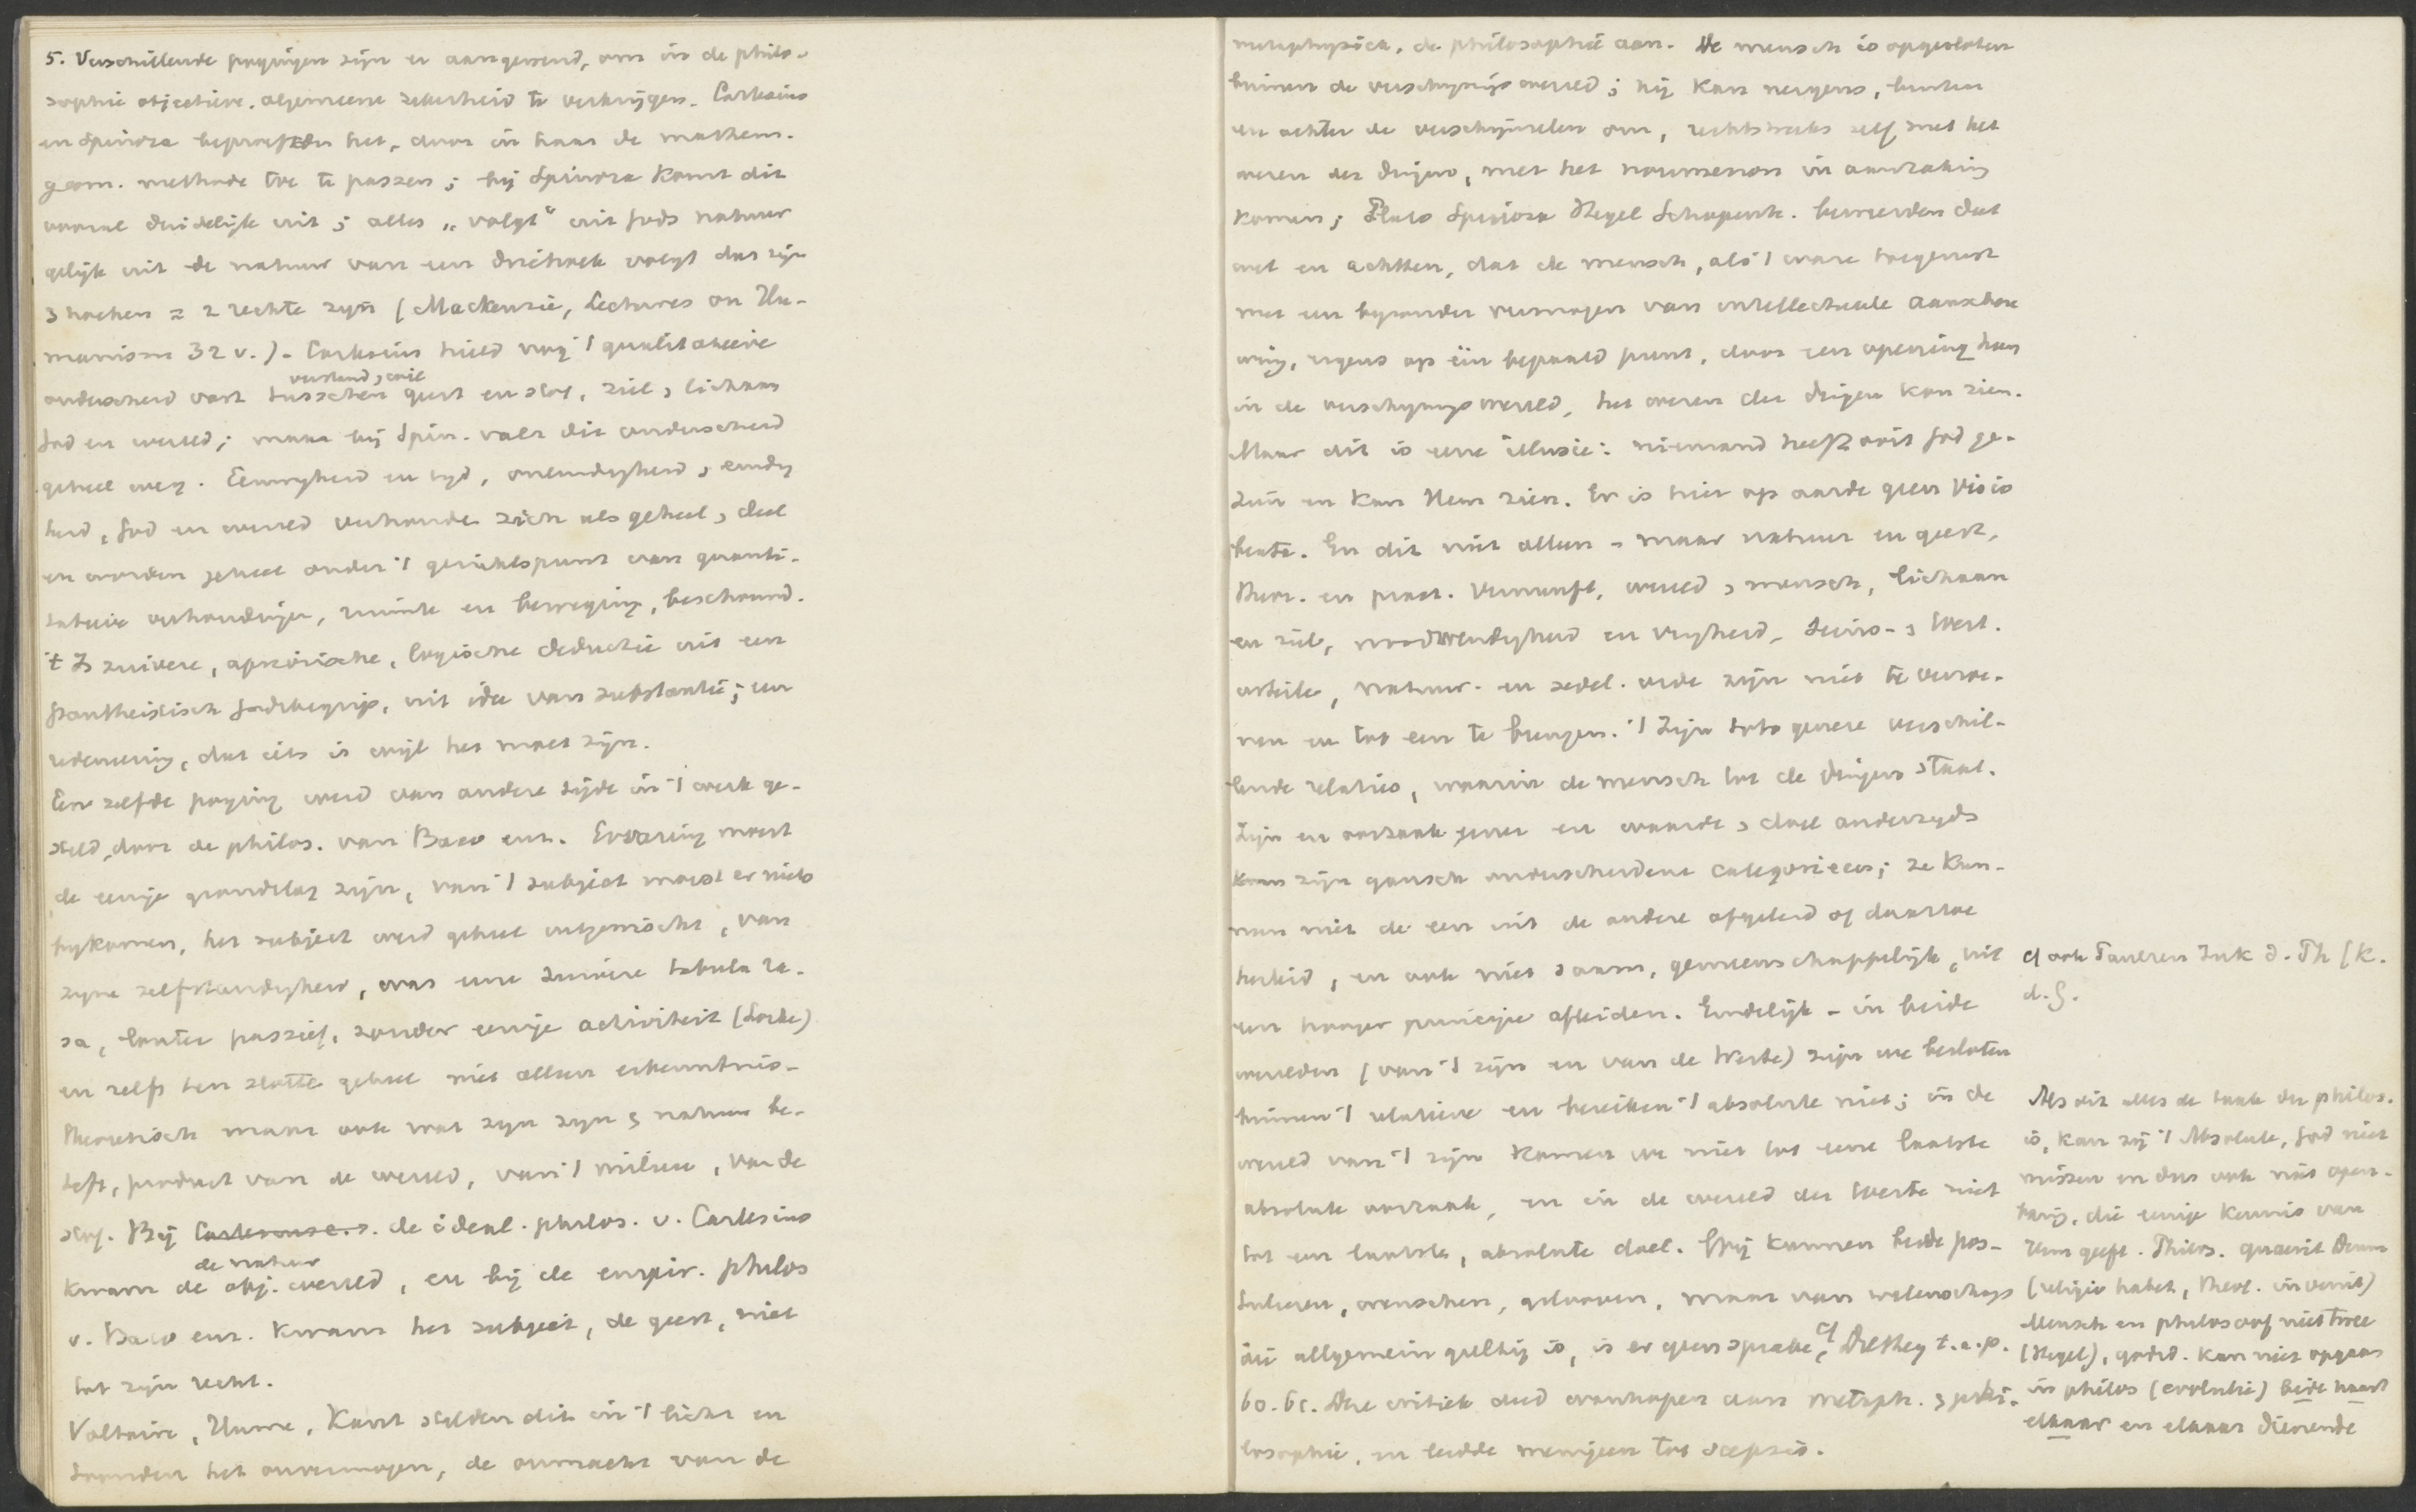 5. Verschillende pogingen zijn er aangewend, om in de philo-
sophie objectieve, algemeene zekerheid te verkrijgen. Cartesius
en Spinoza beproefden het, door in haar de mathem.
geom. methode toe te passen; bij Spinoza komt dit
vooral duidelijk uit; alles „volgt" uit Gods natuur
gelijk uit de natuur van een driehoek volgt dat zijn
3 hoeken = 2 rechte zijn (Mackenzie, Lectures on Hu-
manism 32 v.). Cartesius hield nog 't qualitatieve
verstand, wil
onderscheid vast tusschen geest en stof, ziel, lichaam
God en wereld; maar bij Spin. valt dit onderscheid
geheel weg. Eeuwigheid en tijd, oneindigheid, eindig
heid, God en wereld verhouden zich als geheel, deel
en worden geheel onder 't gezichtspunt van quanti-
tatieve verhoudingen, ruimte en beweging, beschouwd.
't Is zuivere, apriorische, logische deductie uit een
pantheistisch Godsbegrip, uit idee van substantie; een
redeneering, dat iets is wijl het moet zijn.
Een zelfde poging werd van andere zijde in 't werk ge-
steld, door de philos. van Baco enz. Ervaring moest
de eenige grondslag zijn, van 't subject moest er niets
bijkomen, het subject werd geheel uitgewischt, van
zijne zelfstandigheid, was eene zuivere tabula ra-
sa, louter passief, zonder eenige activiteit (Locke)
en zelfs ten slotte geheel niet alleen erkenntnis-
theoretisch maar ook wat zijn zijn & natuur be-
treft, product van de wereld, van 't milieu, van de
stof. Bij de ideal. philos. v. Cartesius
de natuur
kwam de obj. wereld, en bij de empir. philos
v. Baco enz. kwam het subject, de geest, niet
tot zijn recht.
Voltaire, Hume, Kant stelden dit in 't licht en
toonden het onvermogen, de onmacht van de
metaphysica, de philosophie aan. De mensch is opgesloten
binnen de verschijningswereld; hij kan nergens, buiten
en achter de verschijnselen om, rechtstreeks zelf met het
wezen der dingen, met het noumenon in aanraking
komen; Plato Spinoza Hegel Schopenh. beweerden dat
wel en achtten, dat de mensch, als 't ware toegerust
met een bijzonder vermogen van intellectueele aanschou
wing, ergens op één bepaald punt, door een opening heen
in de verschijningswereld, het wezen der dingen kan zien.
Maar dit is eene illusie: niemand heeft ooit God ge-
zien en kan Hem zien. Er is hier op aarde geen visio
beata. En dit niet alleen – maar natuur en geest,
theor. en pract. Vernunft, wereld, mensch, lichaam
en ziel, noodwendigheid en vrijheid, Seins-, Wert.
urteile, natuur- en zedel. orde zijn niet te verzoe-
nen en tot een te brengen. 't Zijn toto genere verschil-
lende relaties, waarin de mensch tot de dingen staat.
Zijn en oorzaak eener en waarde, doel anderzijds
zijn gansch onderscheidene categorieen; ze kun-
nen niet de een uit de andere afgeleid of daartoe
herleid, en ook niet saam, gemeenschappelijk, uit
een hooger principe afleiden. Eindelijk – in beide
werelden (van 't zijn en van de Werte) zijn we besloten
binnen 't relatieve en bereiken 't absolute niet; in de
wereld van 't zijn komen we niet tot eene laatste
absolute oorzaak, en in de wereld der Werte niet
tot een laatste, absolute doel. Wij kunnen beide pos-
tuleeren, wenschen, gelooven, maar van wetenschap
die allgemein gültig is, is er geen sprake, cf Dilthey t.a.p.
60. 61. Deze critiek deed wanhopen aan metaph. & phi-
losophie, en leidde menigeen tot scepsis.
cf ook Zuk d. Th (K.
d. G.
Als dit alles de taak der philos.
is, kan zij 't Absolute, God niet
missen en dus ook niet open-
baring, die eenige kennis van
Hem geeft. Philos. quaerit Deum
(religio habet, theol. invenit)
Mensch en philosoof niet twee
(Hegel), godsd. kan niet opgaan
in philos (evolutie) beide naast
elkaar en elkaar dienende